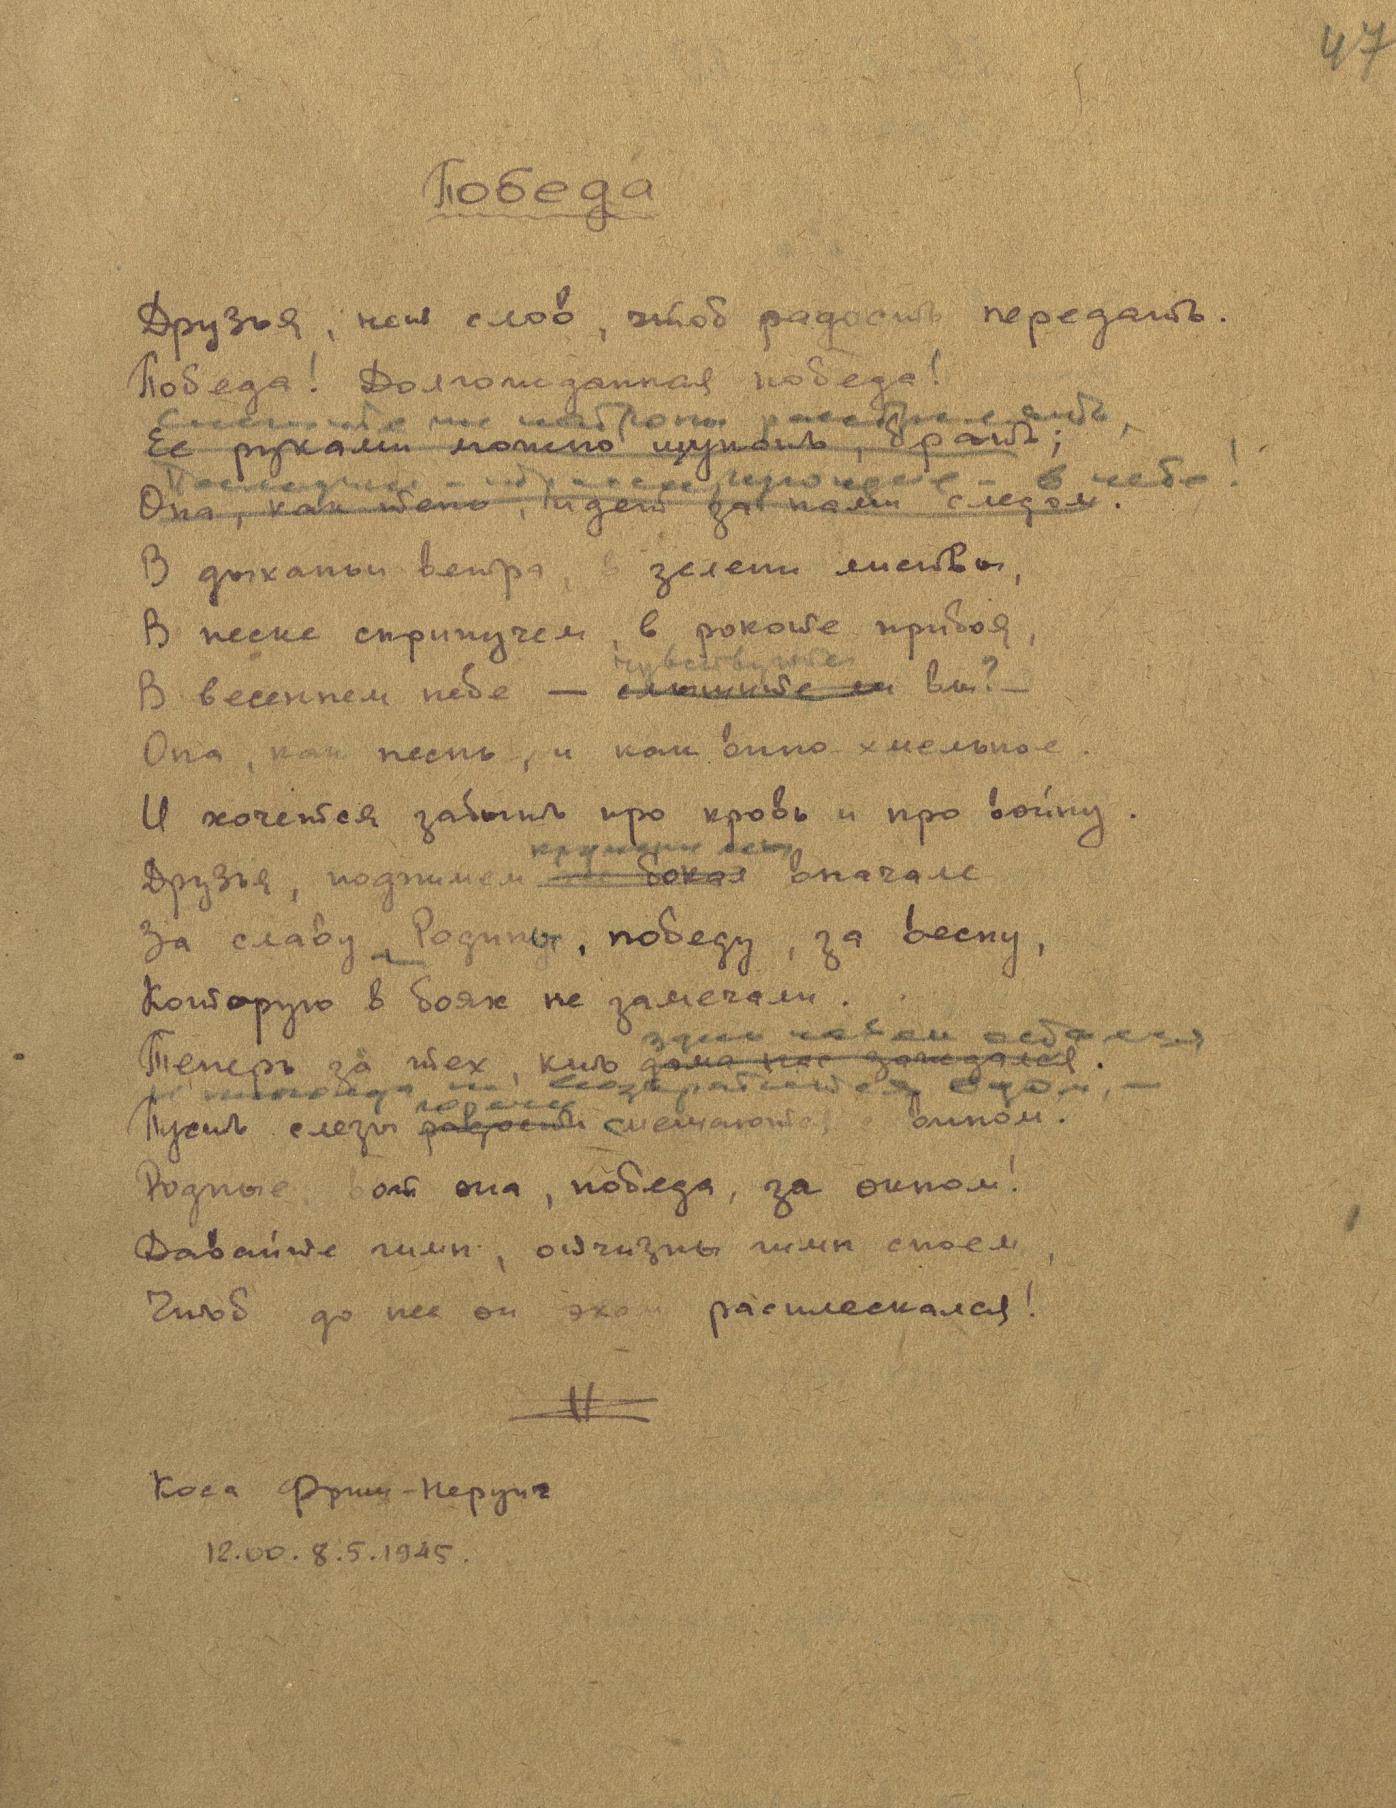 47
Победа
Друзья, нет слов, чтоб радость передать.
Победа! Долгожданная победа!
Спешите патроны расстрелять,
Ее руками можно щупать, брать;
Последний в небо!
Она, как тень, идет за нами следом.
В дыханьи ветра, в зелени листвы,
В песке скрипучем, в рокоте прибоя,
чувствуете
В весеннем небе — слышите ли вы? —
Она, как песнь, и как вино хмельное.
И хочется забыть про кровь и про войну.
Друзья, поднимем бокал вначале
За славу, Родину, победу, за весну,
Которую в боях не замечали.
здесь навек остался
Теперь за тех, кто дома нас заждался.
И никогда не возвратится в дом, —
горечи
Пусть слезы радости смешаются с вином.
Родные, вот она, победа, за окном!
Давайте гимн, отчизны гимн споем,
Чтоб до нее он эхом расплескался!
Коса Фриш-Нерунг
12.00. 8.5.1945.